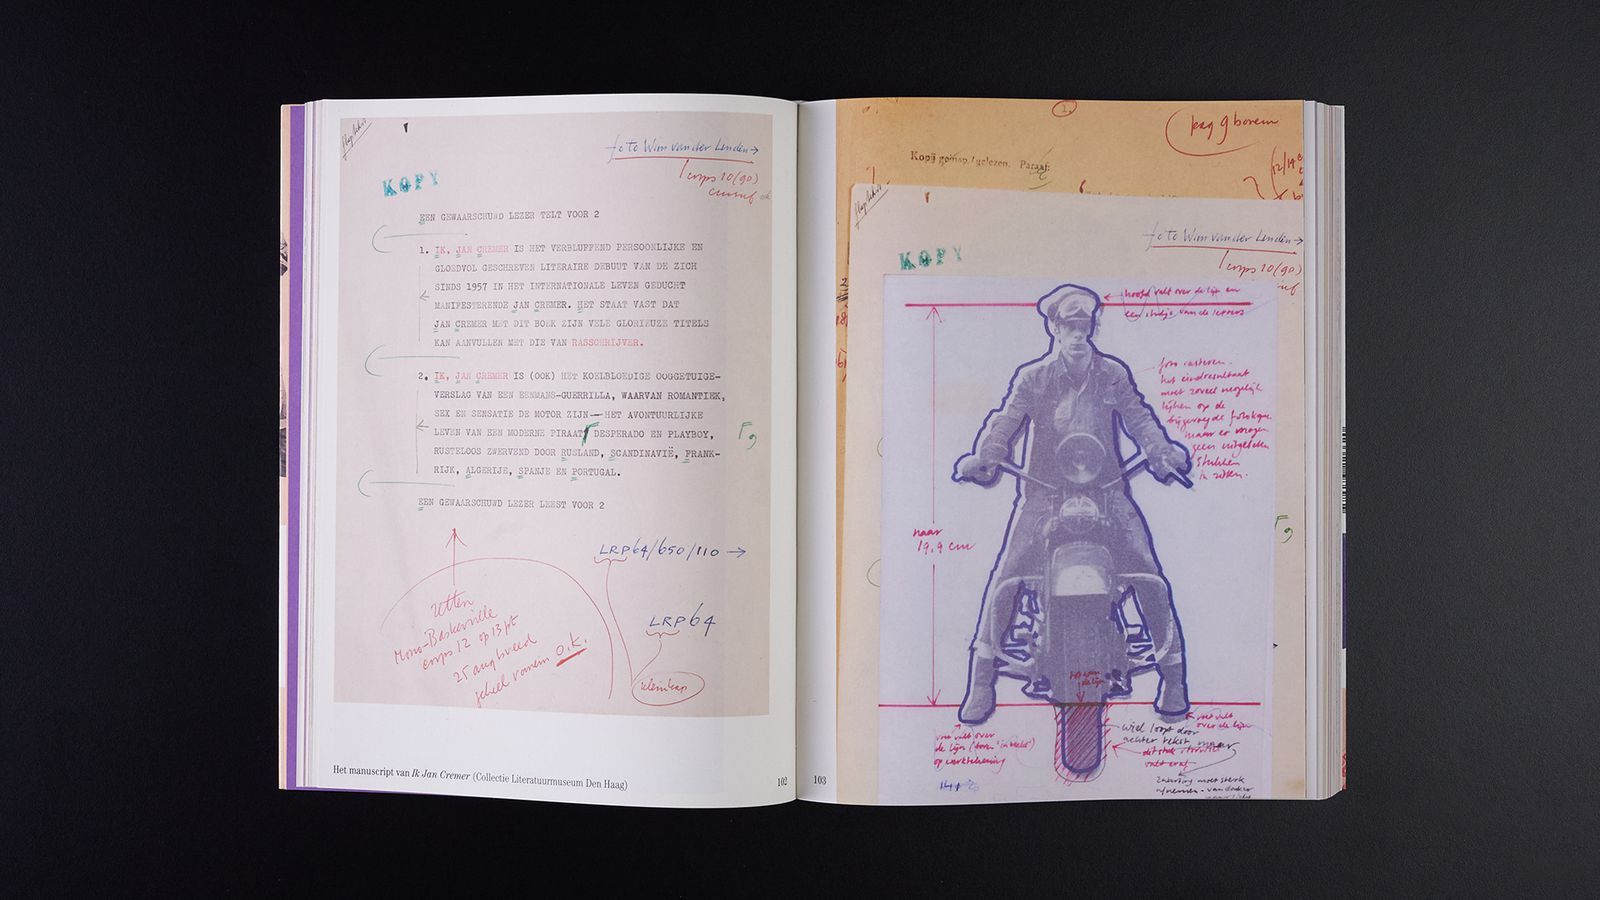 foto Wim van der Linden →
corps 10 (90)
cursief ok
KOPY
EEN GEWAARSCHUWD LEZER TELT VOOR 2
1. IK, JAN CREMER IS HET VERBLUFFEND PERSOONLIJKE EN
GLOEDVOL GESCHREVEN LITERAIRE DEBUUT VAN DE ZICH
SINDS 1957 IN HET INTERNATIONALE LEVEN GEDUCHT
MANIFESTERENDE JAN CREMER. HET STAAT VAST DAT
JAN CREMER MET DIT BOEK ZIJN VELE GLORIEUZE TITELS
KAN AANVULLEN MET DIE VAN RASSCHRIJVER.
2. IK, JAN CREMER IS (OOK) HET KOELBLOEDIGE OOGGETUIGE-
VERSLAG VAN EEN EENMANS-GUERRILLA, WAARVAN ROMANTIEK,
SEX EN SENSATIE DE MOTOR ZIJN — HET AVONTUURLIJKE
LEVEN VAN EEN MODERNE PIRAAT, DESPERADO EN PLAYBOY,
RUSTELOOS ZWERVEND DOOR RUSLAND, SCANDINAVIË, FRANK-
RIJK, ALGERIJE, SPANJE EN PORTUGAL.
EEN GEWAARSCHUWD LEZER LEEST VOOR 2
LRP 64/650/110 →
LRP 64
kleinkap
Zetten
Mono-Baskerville
corps 12 op 13 pt
25 aug breed
geheel romein O.K.
Het manuscript van Ik Jan Cremer (Collectie Literatuurmuseum Den Haag)
102
103
pag 9 boven
Kopij gezien/gelezen. Paraaf:
foto Wim van der Linden →
corps 10 (90)
KOPY
hoofd valt over de lijn en
een stukje van de letters
foto rasteren.
het eindresultaat
moet zoveel mogelijk
lijken op de
bijgevoegde fotokopie
maar er mogen
geen uitgebeten
stukken
in zitten.
naar
19,9 cm
voet valt over
de lijn
op werktekening
voet valt
over de lijn
wiel loopt door
achter tekst maar
valt eraf
moet sterk